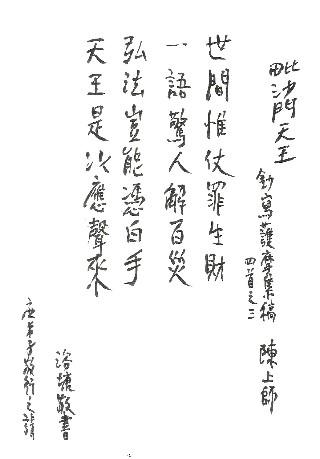 毗沙門天王
鈔寫護摩集稿
四首之三
陳上師
世間惟仗罪生財
一語驚人解百災
弘法豈能憑白手
天王是以應聲來
浴塘敬書
应弟子敬行之請